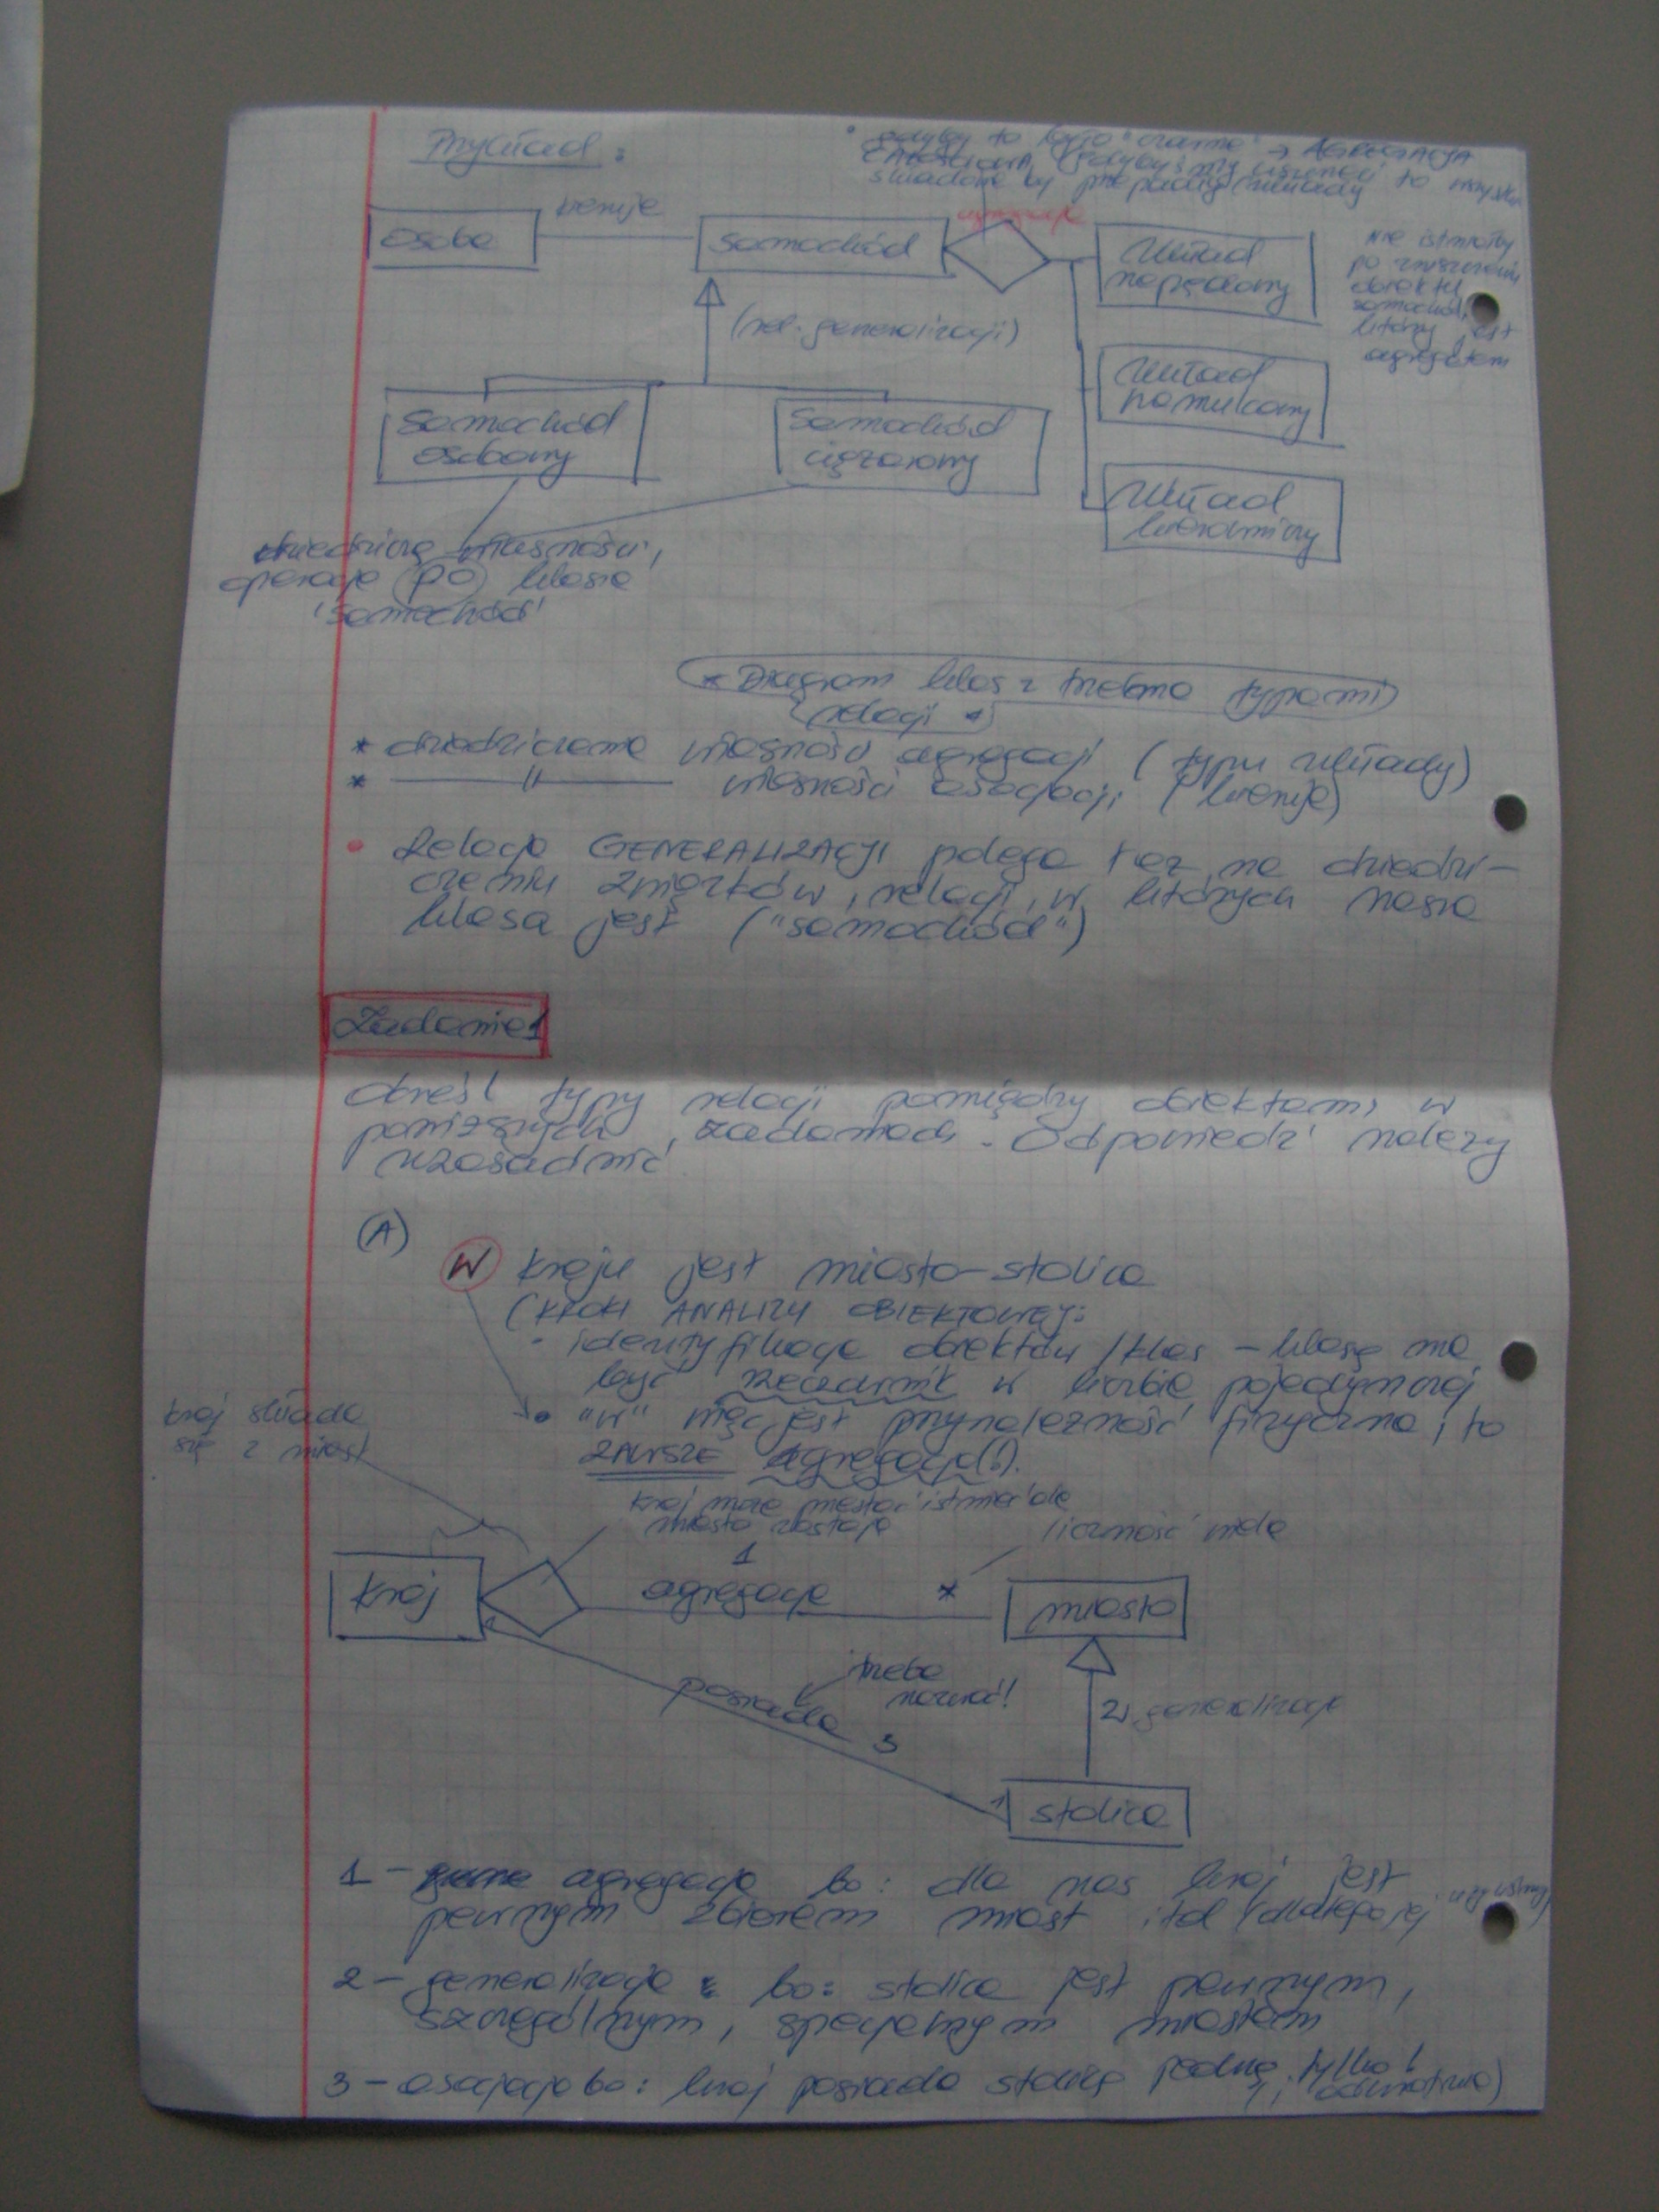 Przykład:
* gdyby to było "czarne" → AGREGACJA
CAŁKOWITA (gdybyśmy usunęli to wszystkie
składowe by przepadły/układy
Osoba
kieruje
Samochód
agregacja
Układ
napędowy
nie istniałby
po zniszczeniu
obiektu
samochód,
który jest
agregatem
(rel. generalizacji)
Układ
hamulcowy
Samochód
osobowy
Samochód
ciężarowy
Układ
kierowniczy
dziedziczą własności,
operacje po klasie
'samochód'
* Diagram klas z trzema typami
relacji *
* dziedziczenie własności agregacji (typu układy)
* —— " —— własności asocjacji (kieruje)
• Relacja GENERALIZACJI polega też na dziedzi-
czeniu związków, relacji, w których nasza
klasa jest ("samochód")
Zadanie 1
Określ typy relacji pomiędzy obiektami w
poniższych zadaniach. Odpowiedzi należy
uzasadnić.
(A)
W kraju jest miasto-stolica
(KROKI ANALIZY OBIEKTOWEJ:
• identyfikacja obiektów/klas – klasą ma
być rzeczownik w liczbie pojedynczej
• "w" więc jest przynależność fizyczna i to
ZAWSZE agregacja(!).
kraj składa
się z miast
kraj może przestać istnieć ale
miasta zostają
liczność wiele
1
Kraj
agregacja
*
miasto
posiada 3
trzeba
nazwać!
2, generalizacja
1
1
stolica
1 – agregacja bo: dla nas kraj jest
pewnym zbiorem miast itd (dlatego jej używamy)
2 – generalizacja bo: stolica jest pewnym,
szczególnym, specjalnym miastem
3 – asocjacja bo: kraj posiada stolicę jedną, tylko!